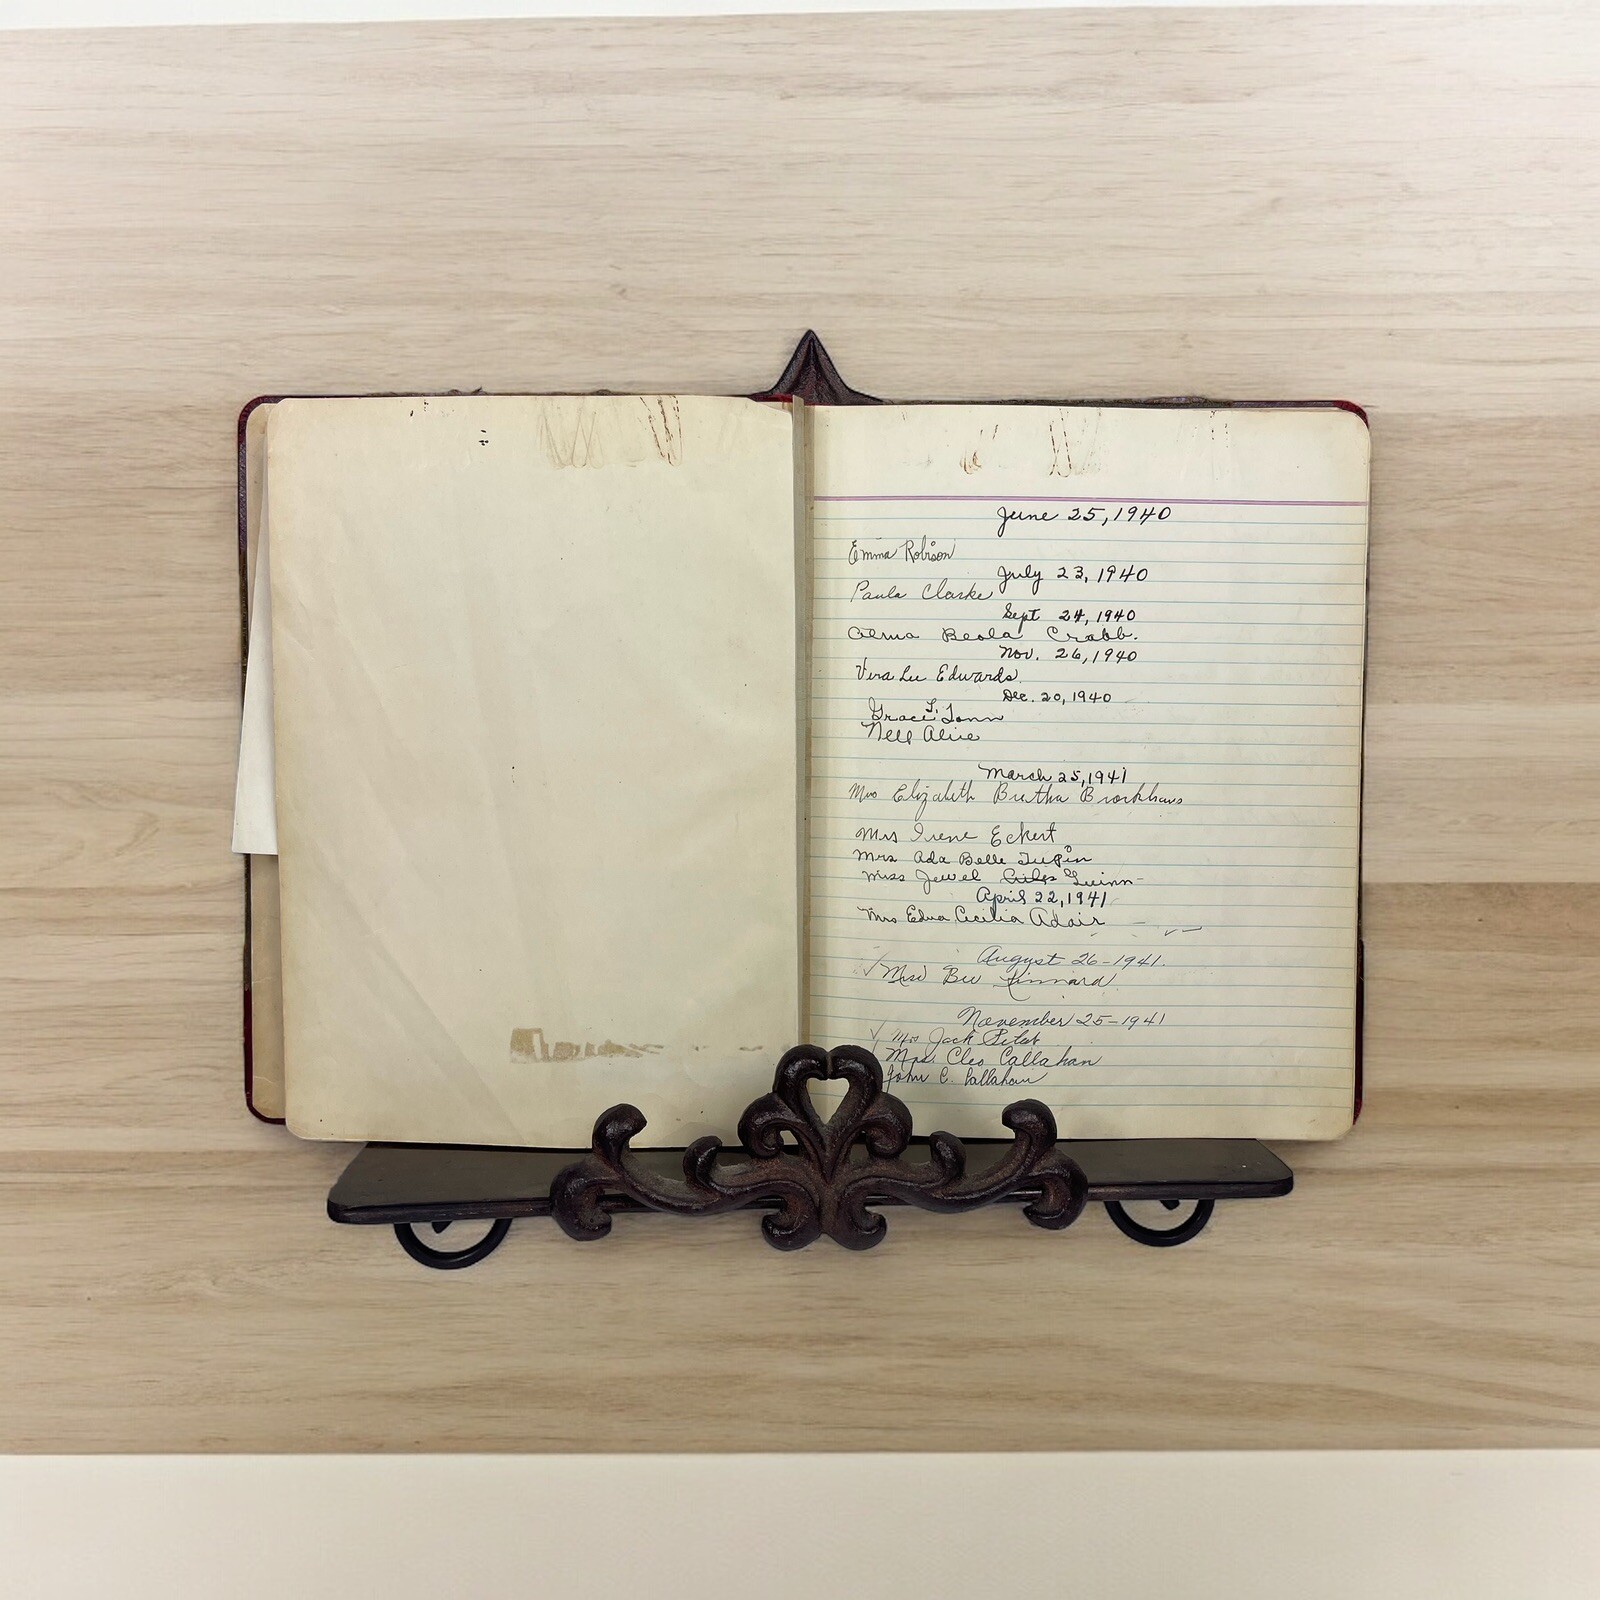 June 25, 1940
Emma Robison
July 23, 1940
Paula Clarke
Sept 24, 1940
Alma Beola Crabb.
Nov. 26, 1940
Vera Lee Edwards.
Dec. 20, 1940
Grace L.
Nell Alice
March 25, 1941
Mrs Elizabeth Bertha Brockhaus
Mrs Irene Eckert
Mrs Ada Belle
Miss Jewel Guinn
April 22, 1941
Mrs Edna Cecilia Adair
August 26-1941.
Bee Kinnard
November 25-1941
Mrs Jack
Mrs. Cleo Callahan
John C. Callahan